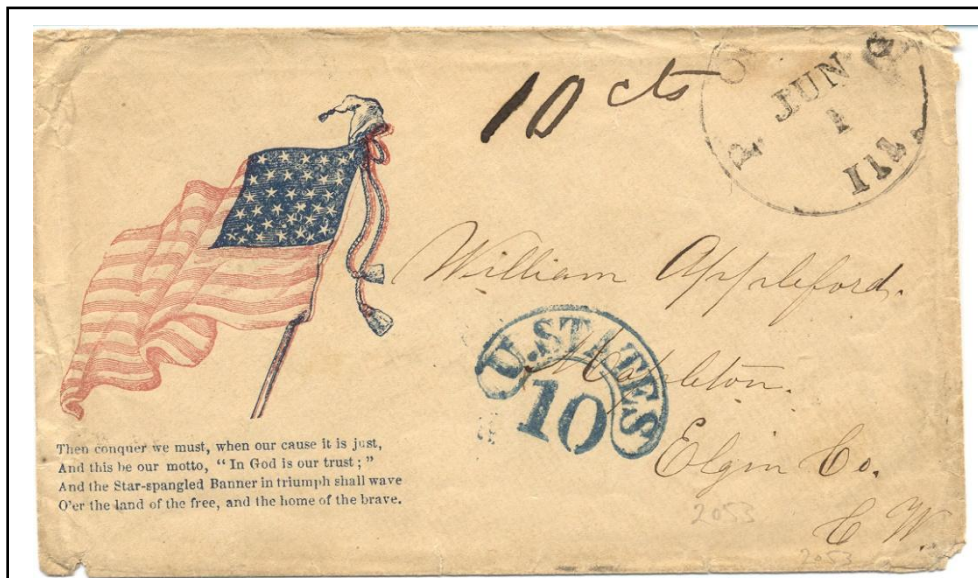 10 cts
JUN
1
Ill.
William Appleford.
U.STATES
10
Mapleton.
Elgin Co.
C W.
Then conquer we must, when our cause it is just,
And this be our motto, "In God is our trust;"
And the Star-spangled Banner in triumph shall wave
O'er the land of the free, and the home of the brave.
2053
2053